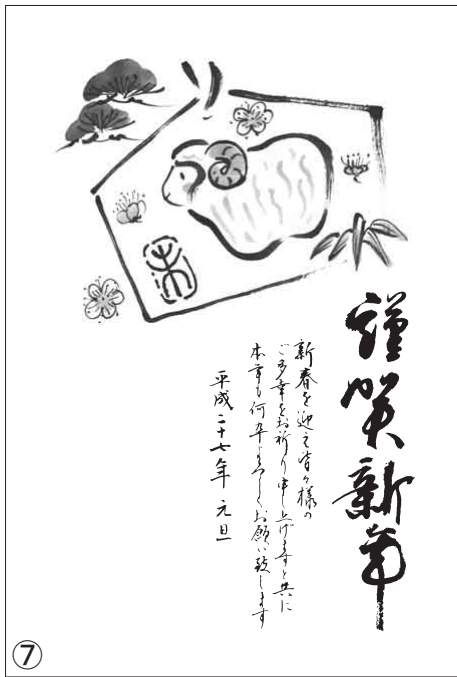 謹賀新年
新春を迎え皆々様の
ご多幸をお祈り申し上げますと共に
本年も何卒よろしくお願い致します
平成二十七年 元旦
未
⑦